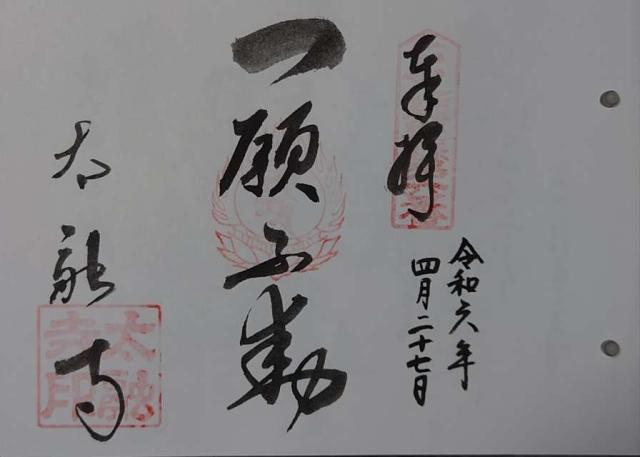 奉拝
令和六年
四月二十七日
一願不動
太融寺
太融
寺印